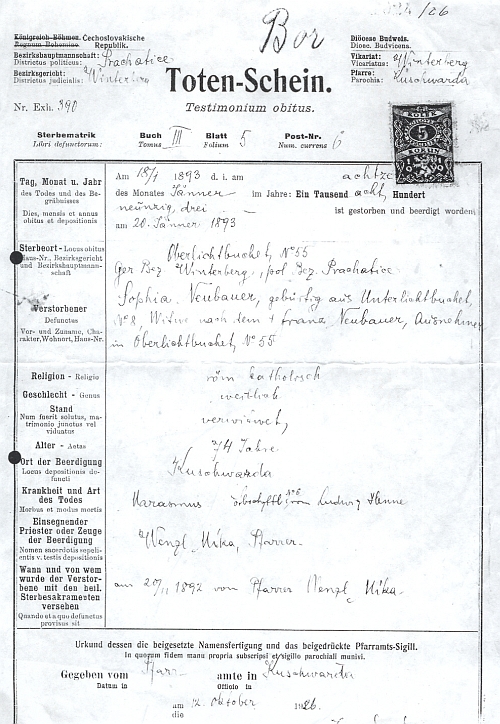 /26
Bor
Königreich Böhmen. Čechoslovakische
Regnum Bohemiae Republik.
Bezirkshauptmannschaft:
Districtus politicus: Prachatice
Bezirksgericht:
Districtus iudicialis: Winterberg
Diöcese Budweis.
Dioec. Budvicens.
Vikariat:
Vicariatus: Winterberg
Pfarre:
Parochia: Kuschwarda
Toten-Schein.
Testimonium obitus.
Nr. Exh. 390
5
Sterbematrik Buch III Blatt 5 Post-Nr. 6
Libri defunctorum: Tomus Folium Num. currens
Tag, Monat u. Jahr
des Todes und des Be-
gräbnisses
Dies, mensis et annus
obitus et depositionis
Am 18/1 1893 d. i. am achtze
des Monates Jänner im Jahre: Ein Tausend acht Hundert
neunzig drei — ist gestorben und beerdigt worden
am 20. Jänner 1893
Sterbeort - Locus obitus
Haus-Nr., Bezirksgericht
und Bezirkshauptmann-
schaft
Oberlichtbuchet, No 55
Ger Bez. Winterberg, pol. Bez. Prachatice
Verstorbener
Defunctus
Vor- und Zuname, Cha-
rakter, Wohnort, Haus-Nr.
Sophia Neubauer, gebürtig aus Unterlichtbuchet,
Witwe nach dem + Franz Neubauer, Ausnehmer
in Oberlichtbuchet No 55
Religion - Religio
röm katholisch
Geschlecht - Genus
weiblich
Stand
Num fuerit solutus, ma-
trimonio junctus vel
viduatus
verwitwet,
Alter - Aetas
74 Jahre
Ort der Beerdigung
Locus depositionis de-
functi
Kuschwarda
Krankheit und Art
des Todes
Morbus et modus mortis
Marasmus No 6 von Ludwig Henne
Einsegnender
Priester oder Zeuge
der Beerdigung
Nomen sacerdotis sepeli-
entis v. testis depositionis
Wenzl Mika, Pfarrer.
Wann und von wem
wurde der Verstor-
bene mit den heil.
Sterbesakramenten
versehen
Quando et a quo defunctus
provisus sit
am 20/11 1892 von Pfarrer Wenzl Mika
Urkund dessen die beigesetzte Namensfertigung und das beigedrückte Pfarramts-Sigill.
In quorum fidem manu propria subscripsi et sigillo parochiali munivi.
Gegeben vom Pfarr amte in Kuschwarda
Datum in Officio in
am 12. Oktober 1926.
die